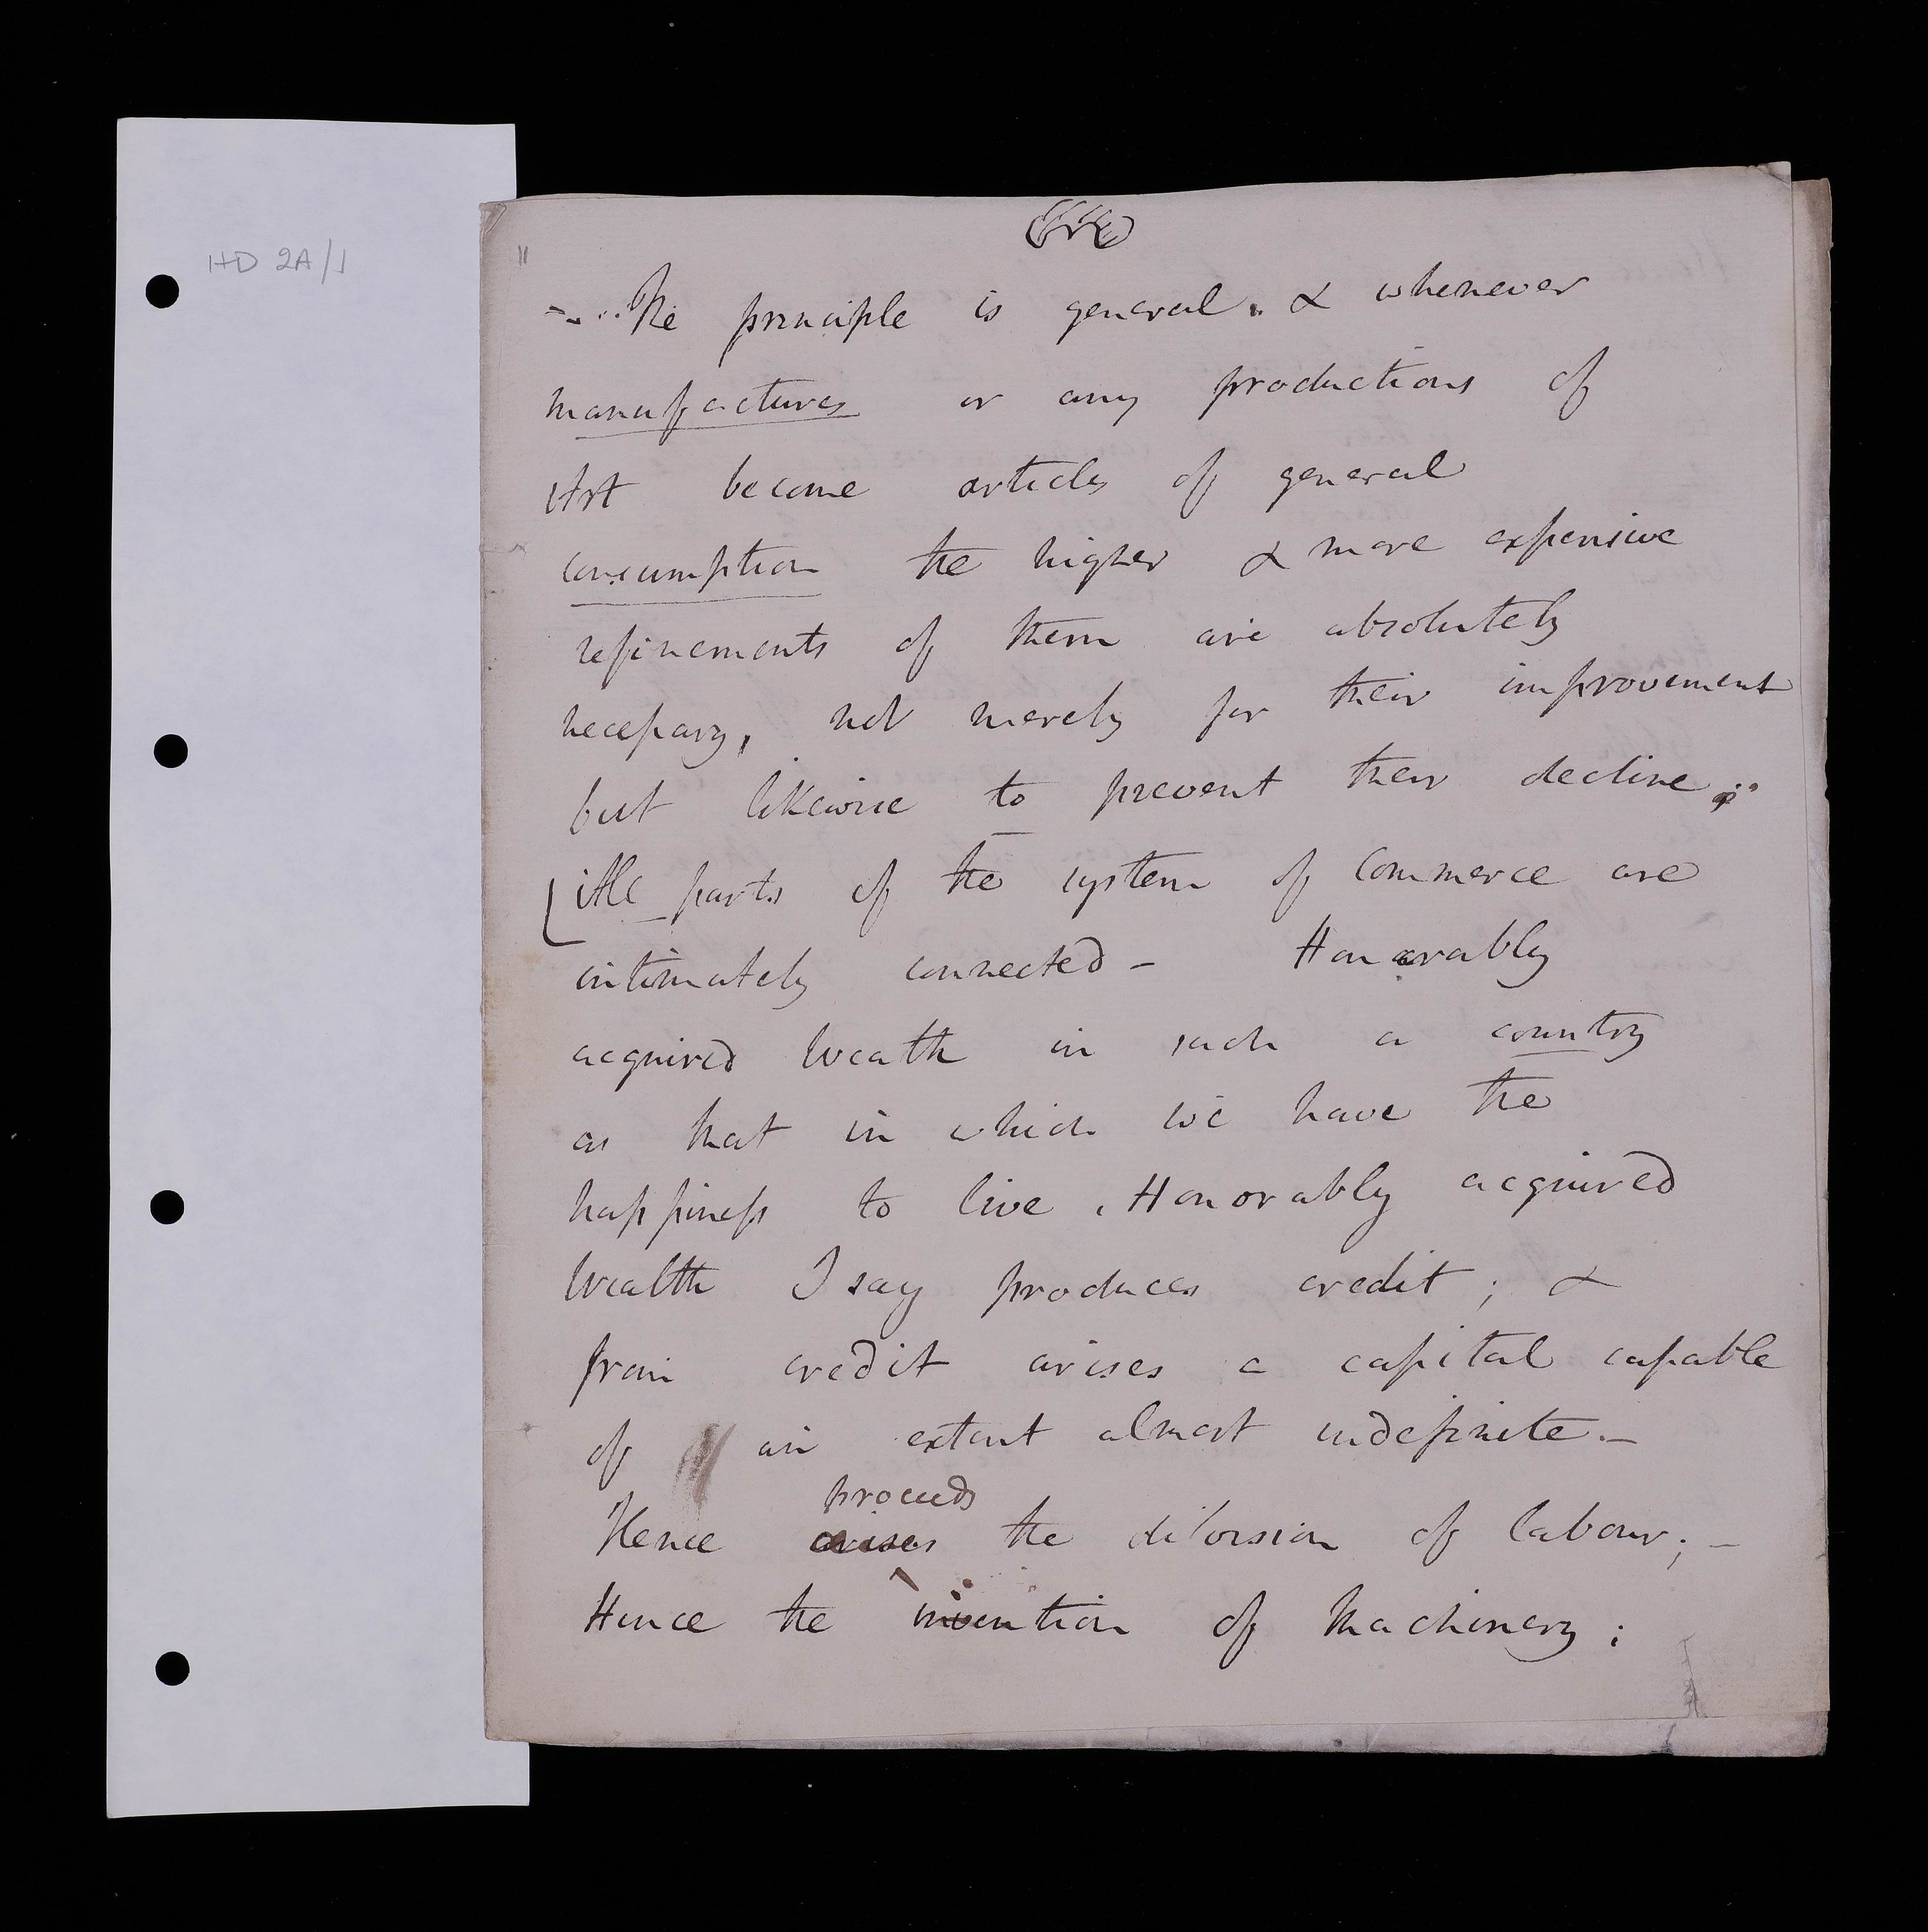 HD 2A/1
11
The principle is general. & whenever
manufactures or any productions of
Art become articles of general
consumption the higher & more expensive
refinements of them are absolutely
necessary, not merely for their improvement
but likewise to prevent their decline..
[All parts of the system of Commerce are
intimately connected - Honorably
acquired weath in such a country
as that in which we have the
happiness to live. Honorably acquired
wealth I say produces credit; &
from credit arises a capital capable
of an extent almost indefinite. -
proceeds
Hence arises the division of labour; -
Hence the invention of Machinery;